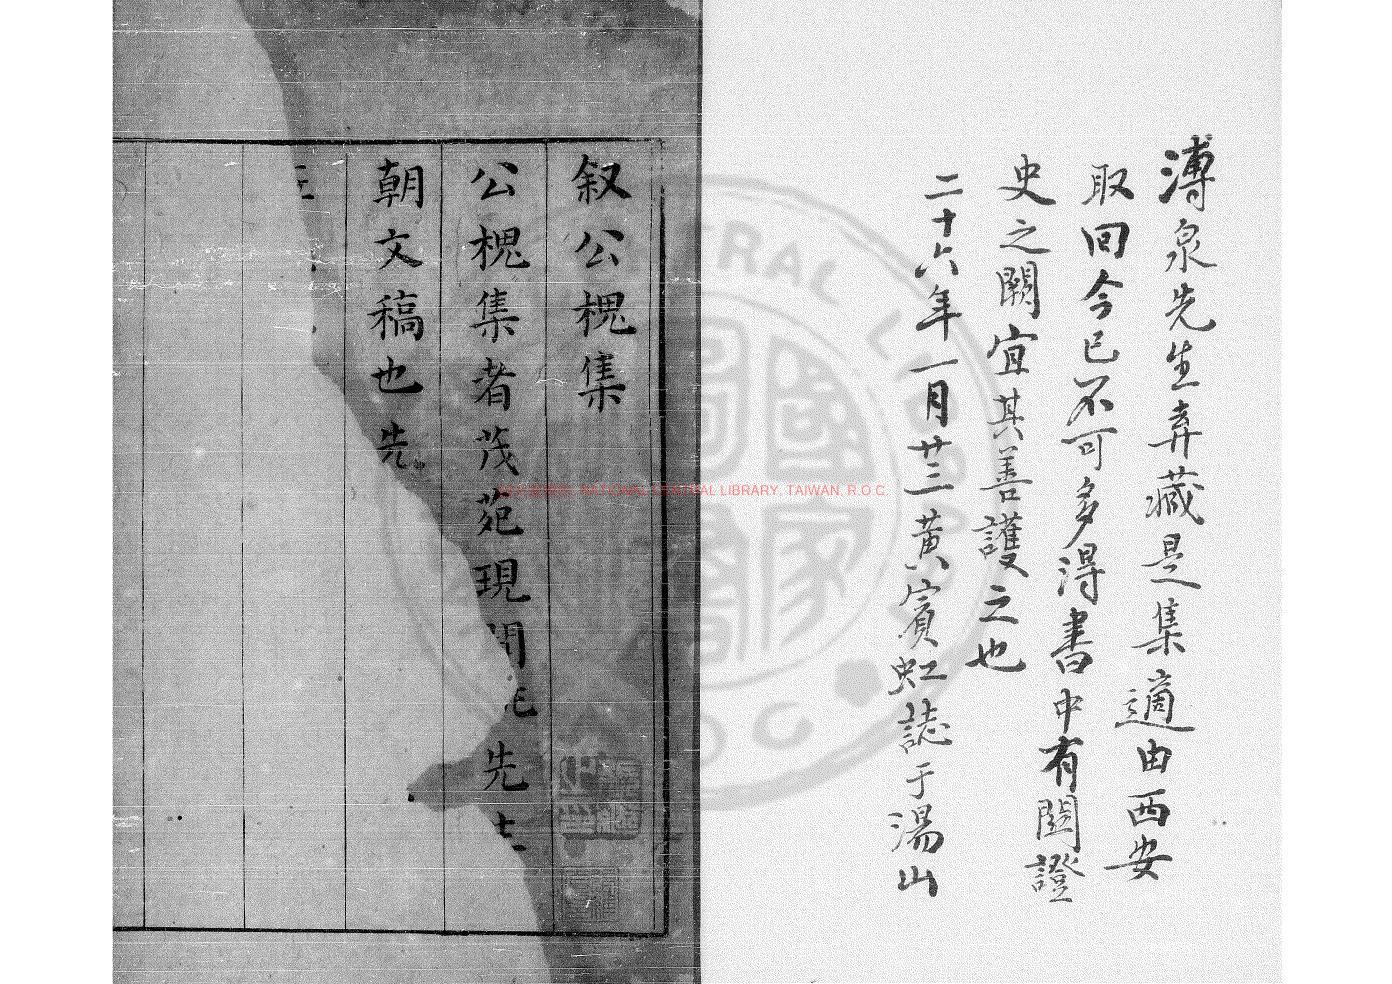 溥泉先生弆藏是集適由西安
取回今已不可多得書中有關證
史之闕宜其善護之也
二十六年一月廿三黃賓虹誌于湯山
叙公槐集
公槐集者茂苑現聞 先
朝文稿也先
NATIONAL CENTRAL LIBRARY, TAIWAN, R.O.C.